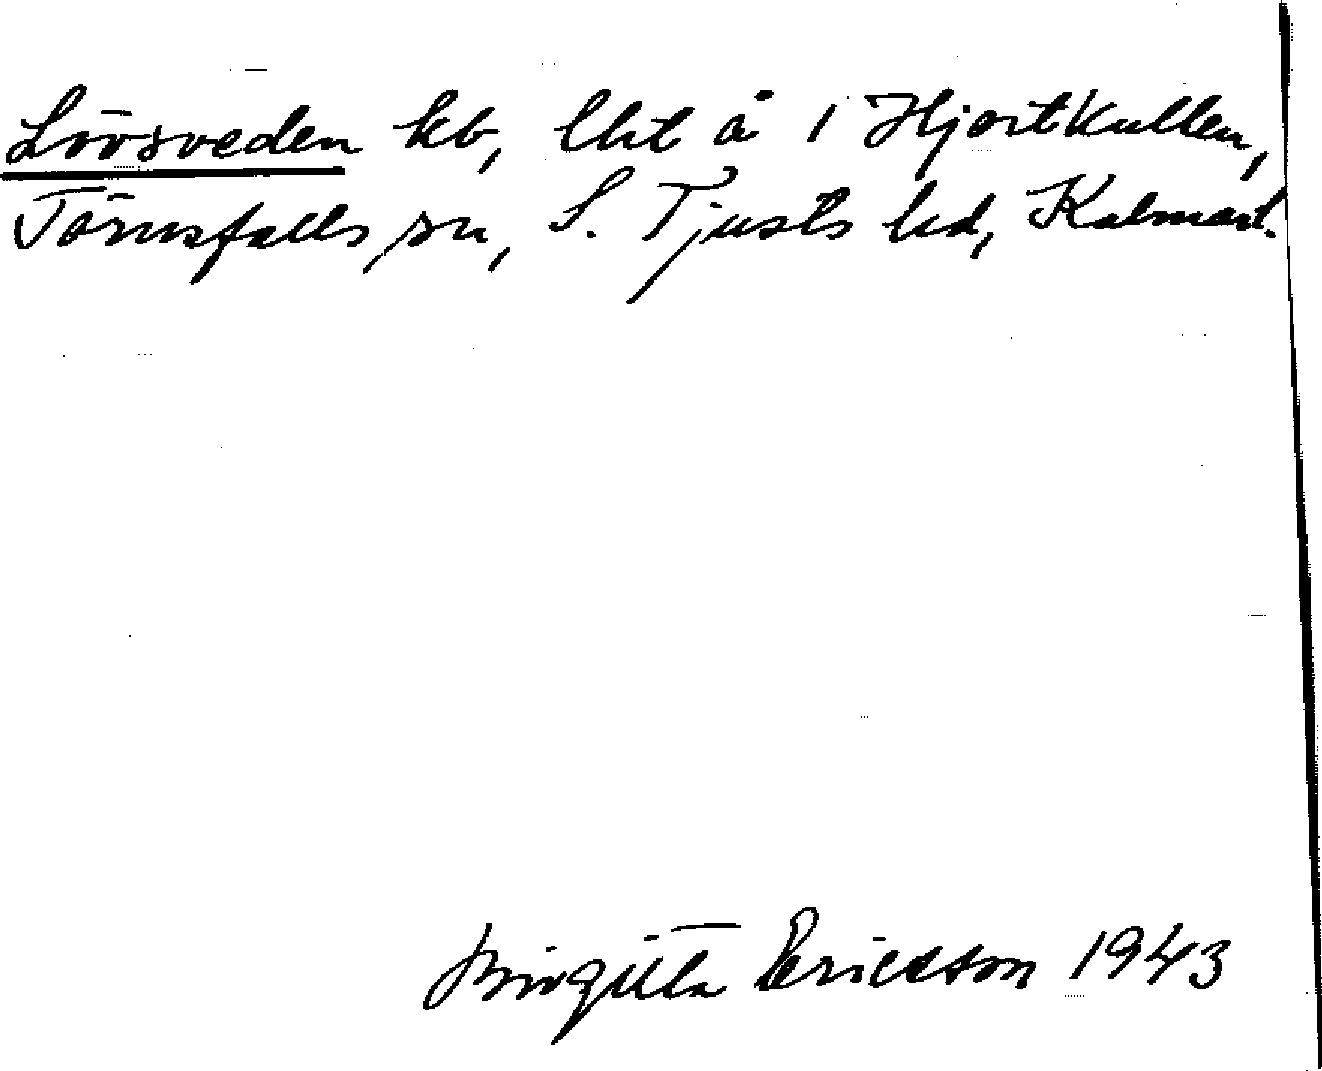 Lövsveden kb, lht å 1 Hjortkullen,
Törnsfalls sn, S. Tjusts hd, Kalmarl.
Birgitta Ericsson 1943